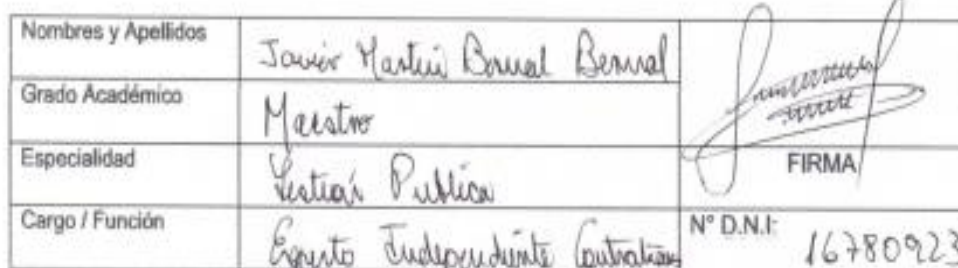 Nombres y Apellidos
Javier Martin Bernal Bernal
Grado Académico
Maestro
Especialidad
Gestión Publica
FIRMA
Cargo / Función
Experto Independiente
N° D.N.I:
16780923